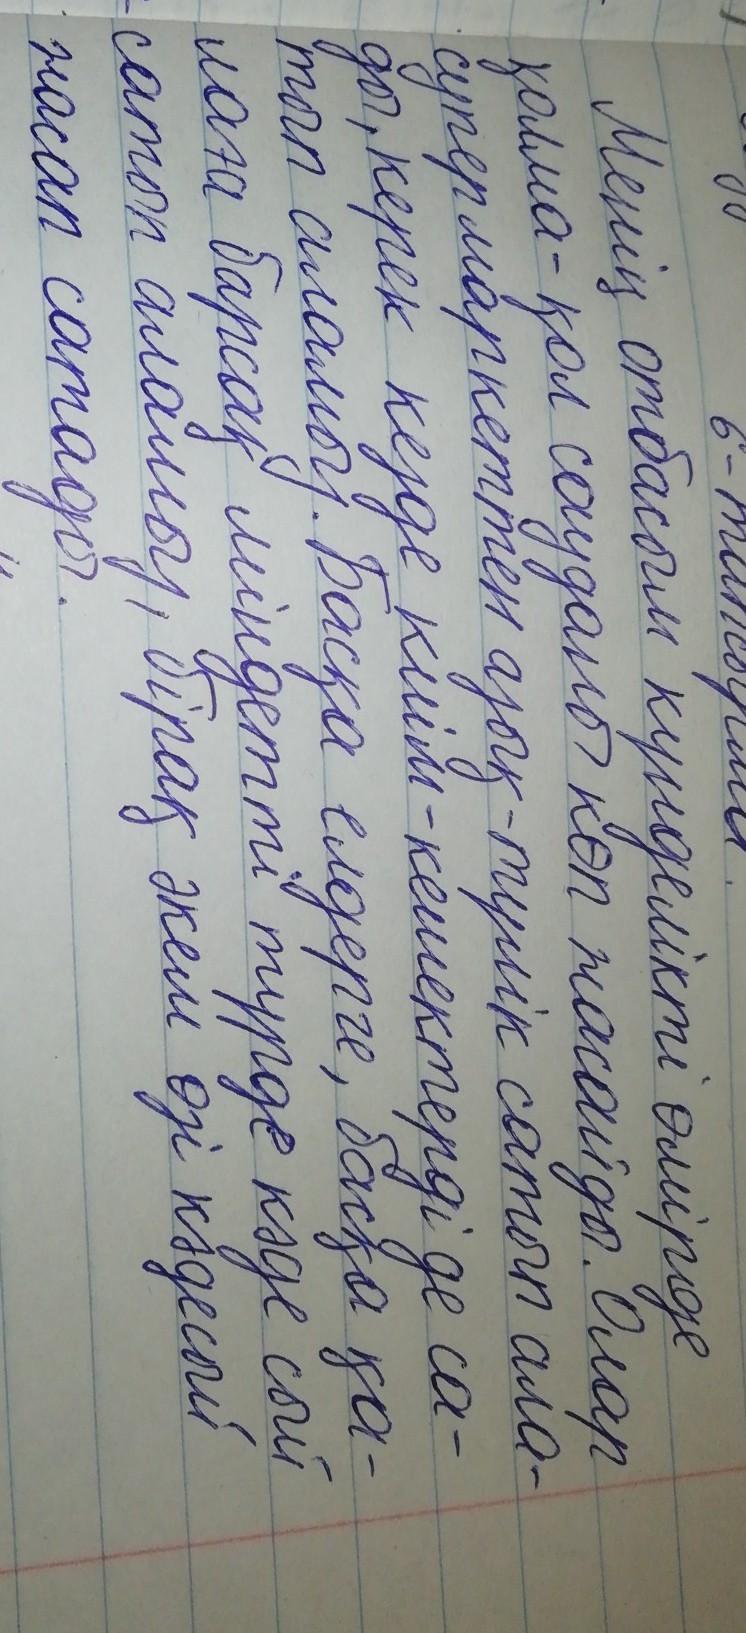 6-тапсырма.
Менің отбасым күнделікті өмірде
қолма-қол сауданы көп жасайды. Олар
супермаркеттен азық-түлік сатып ала-
ды, керек кезде киім-кешектерді де са-
тып аламыз. Басқа елдерге, басқа қа-
лаға барсақ міндетті түрде кәде сый
сатып аламыз, бірақ әкем өзі кәдесый
жасап сатады.